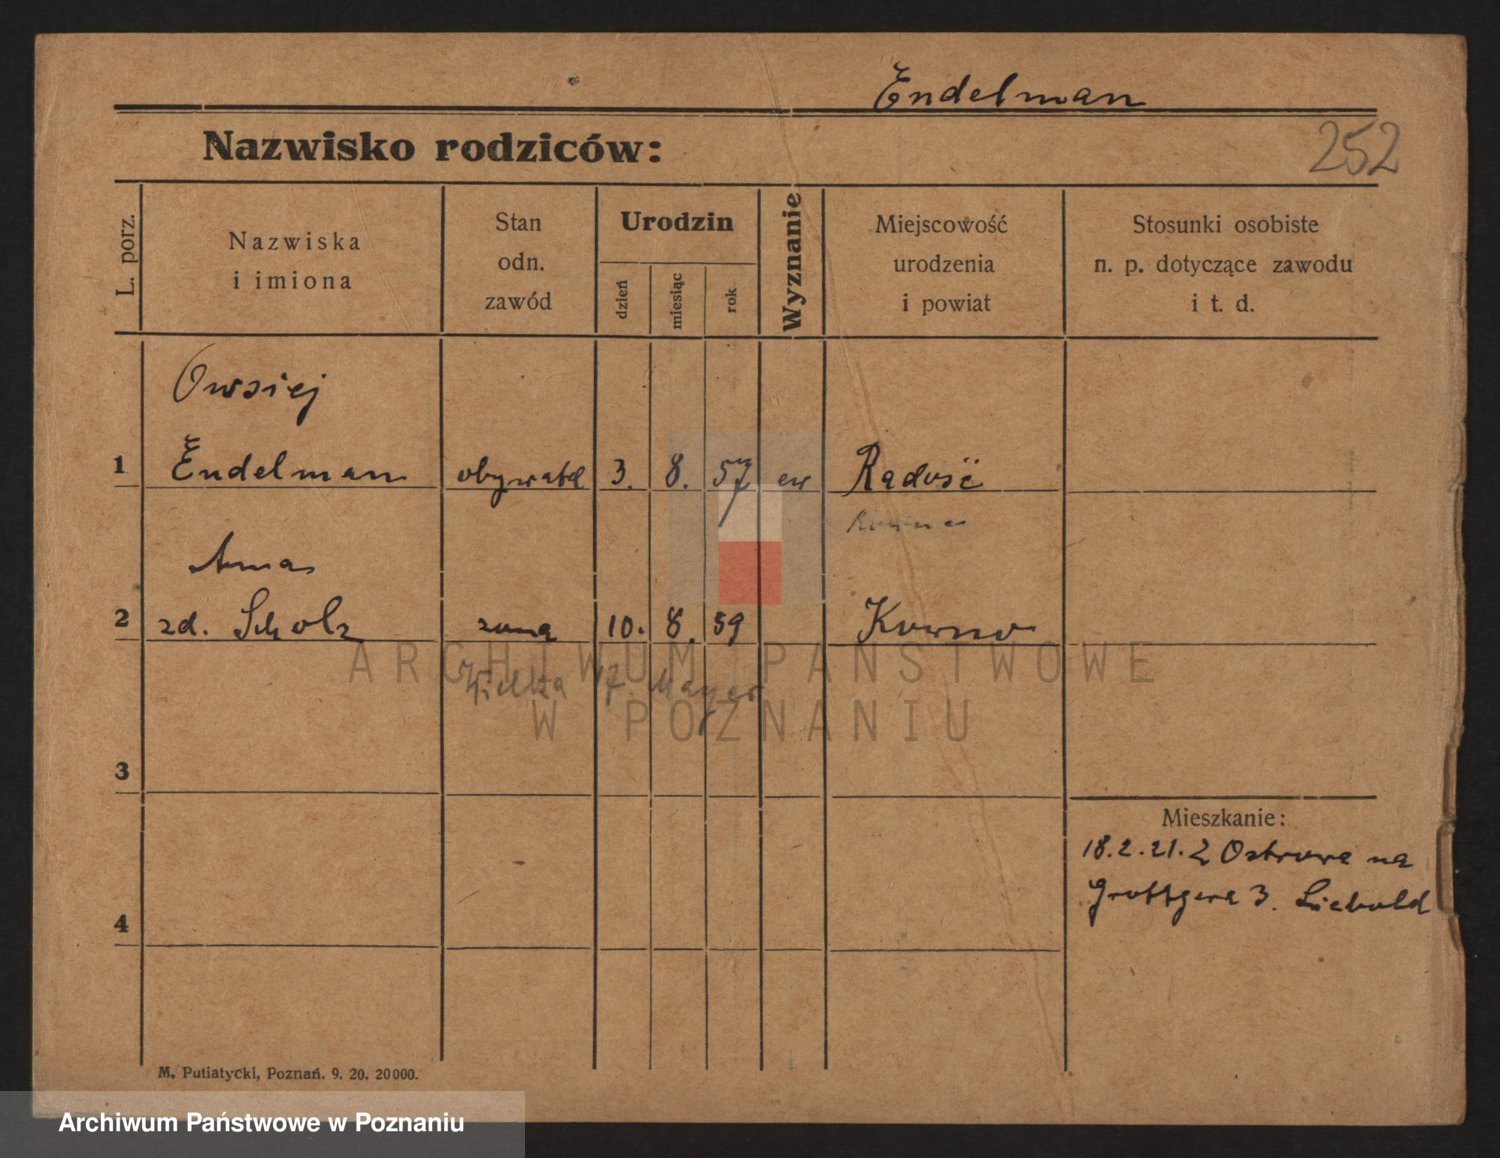 Endelman
252
Nazwisko rodziców:
L. porz.
Nazwiska
i imiona
Stan
odn.
zawód
Urodzin
dzień
miesiąc
rok
Wyznanie
Miejscowość
urodzenia
i powiat
Stosunki osobiste
n. p. dotyczące zawodu
i t. d.
Owsiej
1 Endelman obywatel 3. 8. 57 ew Radość
Anna
2 zd. Scholz żona 10. 8. 59 Kowno
Wielka 17. Mayer
3
Mieszkanie:
18.2.21. Z Ostrowa na
Grottgera 3. Siebold
4
M. Putiatycki, Poznań. 9. 20. 20000.
ARCHIWUM PAŃSTWOWE
W POZNANIU
Archiwum Państwowe w Poznaniu